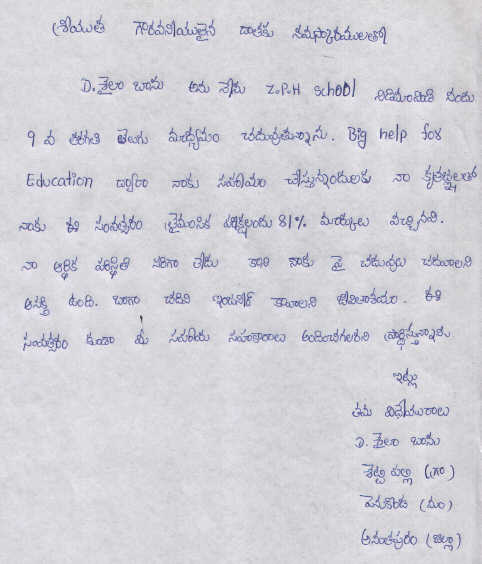 శ్రీయుత గౌరవనీయులైన దాతకు నమస్కారములతో
D. శైలా బాను అను నేను Z.P.H School నిడిమామిడి నందు
9 వ తరగతి తెలుగు మాధ్యమం చదువుతున్నాను. Big help for
Education ద్వారా నాకు సహాయం చేస్తున్నందులకు నా కృతజ్ఞతలతో
నాకు ఈ సంవత్సరం త్రైమాసిక పరీక్షలందు 81% మార్కులు వచ్చినవి.
నా ఆర్థిక పరిస్థితి సరిగా లేదు కాని నాకు పై చదువులు చదవాలని
ఆసక్తి ఉంది. బాగా చదివి కావాలని జీవితాశయం. ఈ
సంవత్సరం కూడా మీ సహాయ సహకారాలు అందించగలరని ప్రార్థిస్తున్నాను.
ఇట్లు
తమ విధేయురాలు
D. శైలా బాను
శెట్టి పల్లి (గ్రా)
పెనుకొండ (మం)
అనంతపురం (జిల్లా)